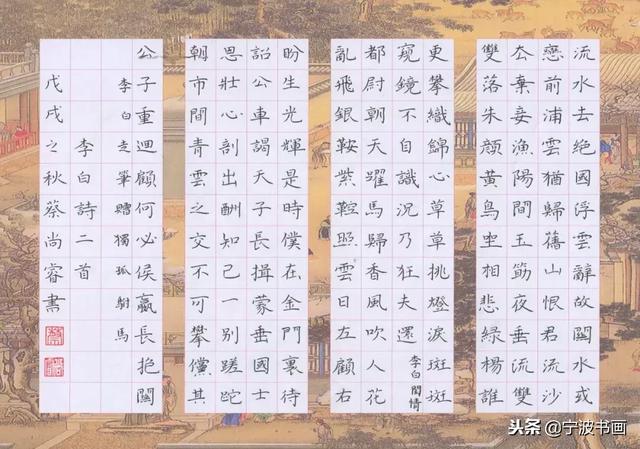 流水去絕國浮雲辭故關水或
戀前浦雲猶歸舊山恨君流沙
去棄妾漁陽間玉筯夜垂流雙
雙落朱顏黃鳥坐相悲綠楊誰
更攀織錦心草草挑燈淚斑斑
窺鏡不自識況乃狂夫還 李白閨情
都尉朝天躍馬歸香風吹人花
亂飛銀鞍紫鞚照雲日左顧右
盼生光輝是時僕在金門裏待
詔公車謁天子長揖蒙垂國士
恩壯心剖出酬知己一別蹉跎
朝市間青雲之交不可攀儻其
公子重迴顧何必侯嬴長抱關
李白走筆贈獨孤駙馬
李白詩二首
戊戌之秋蔡尚睿書
头条@宁波书画